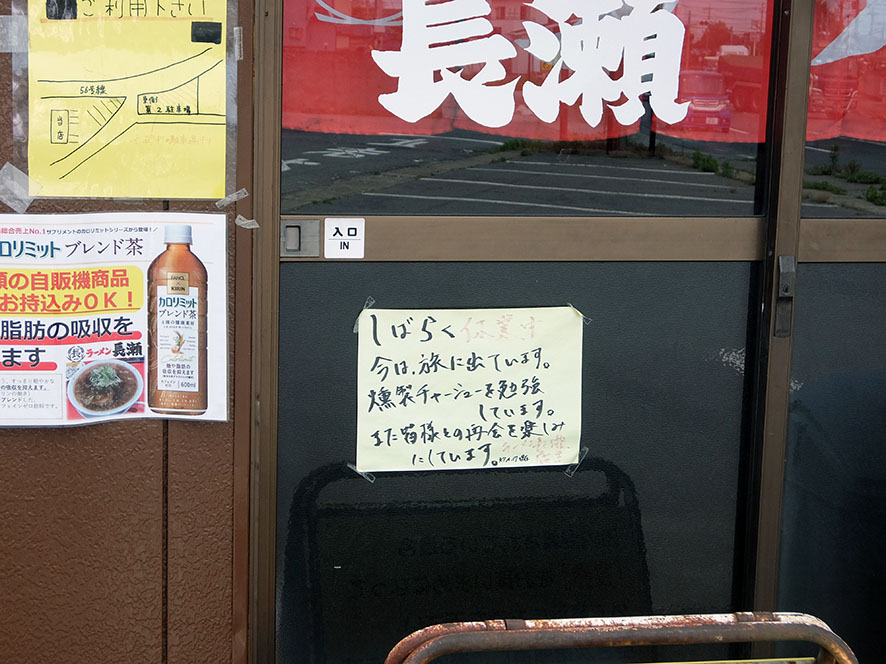 ご利用下さい
56号線
当店
第2駐車場
長瀬
入口
IN
総合売上No.1サプリメントのカロリミットシリーズから登場!
カロリミット ブレンド茶
の自販機商品
お持込みOK!
脂肪の吸収を
ます
ラーメン長瀬
FANCL
KIRIN
カロリミット
ブレンド茶
600ml
しばらく休業中
今は、旅に出ています。
燻製チャーシューを勉強
しています。
また皆様との再会を楽しみ
にしています。